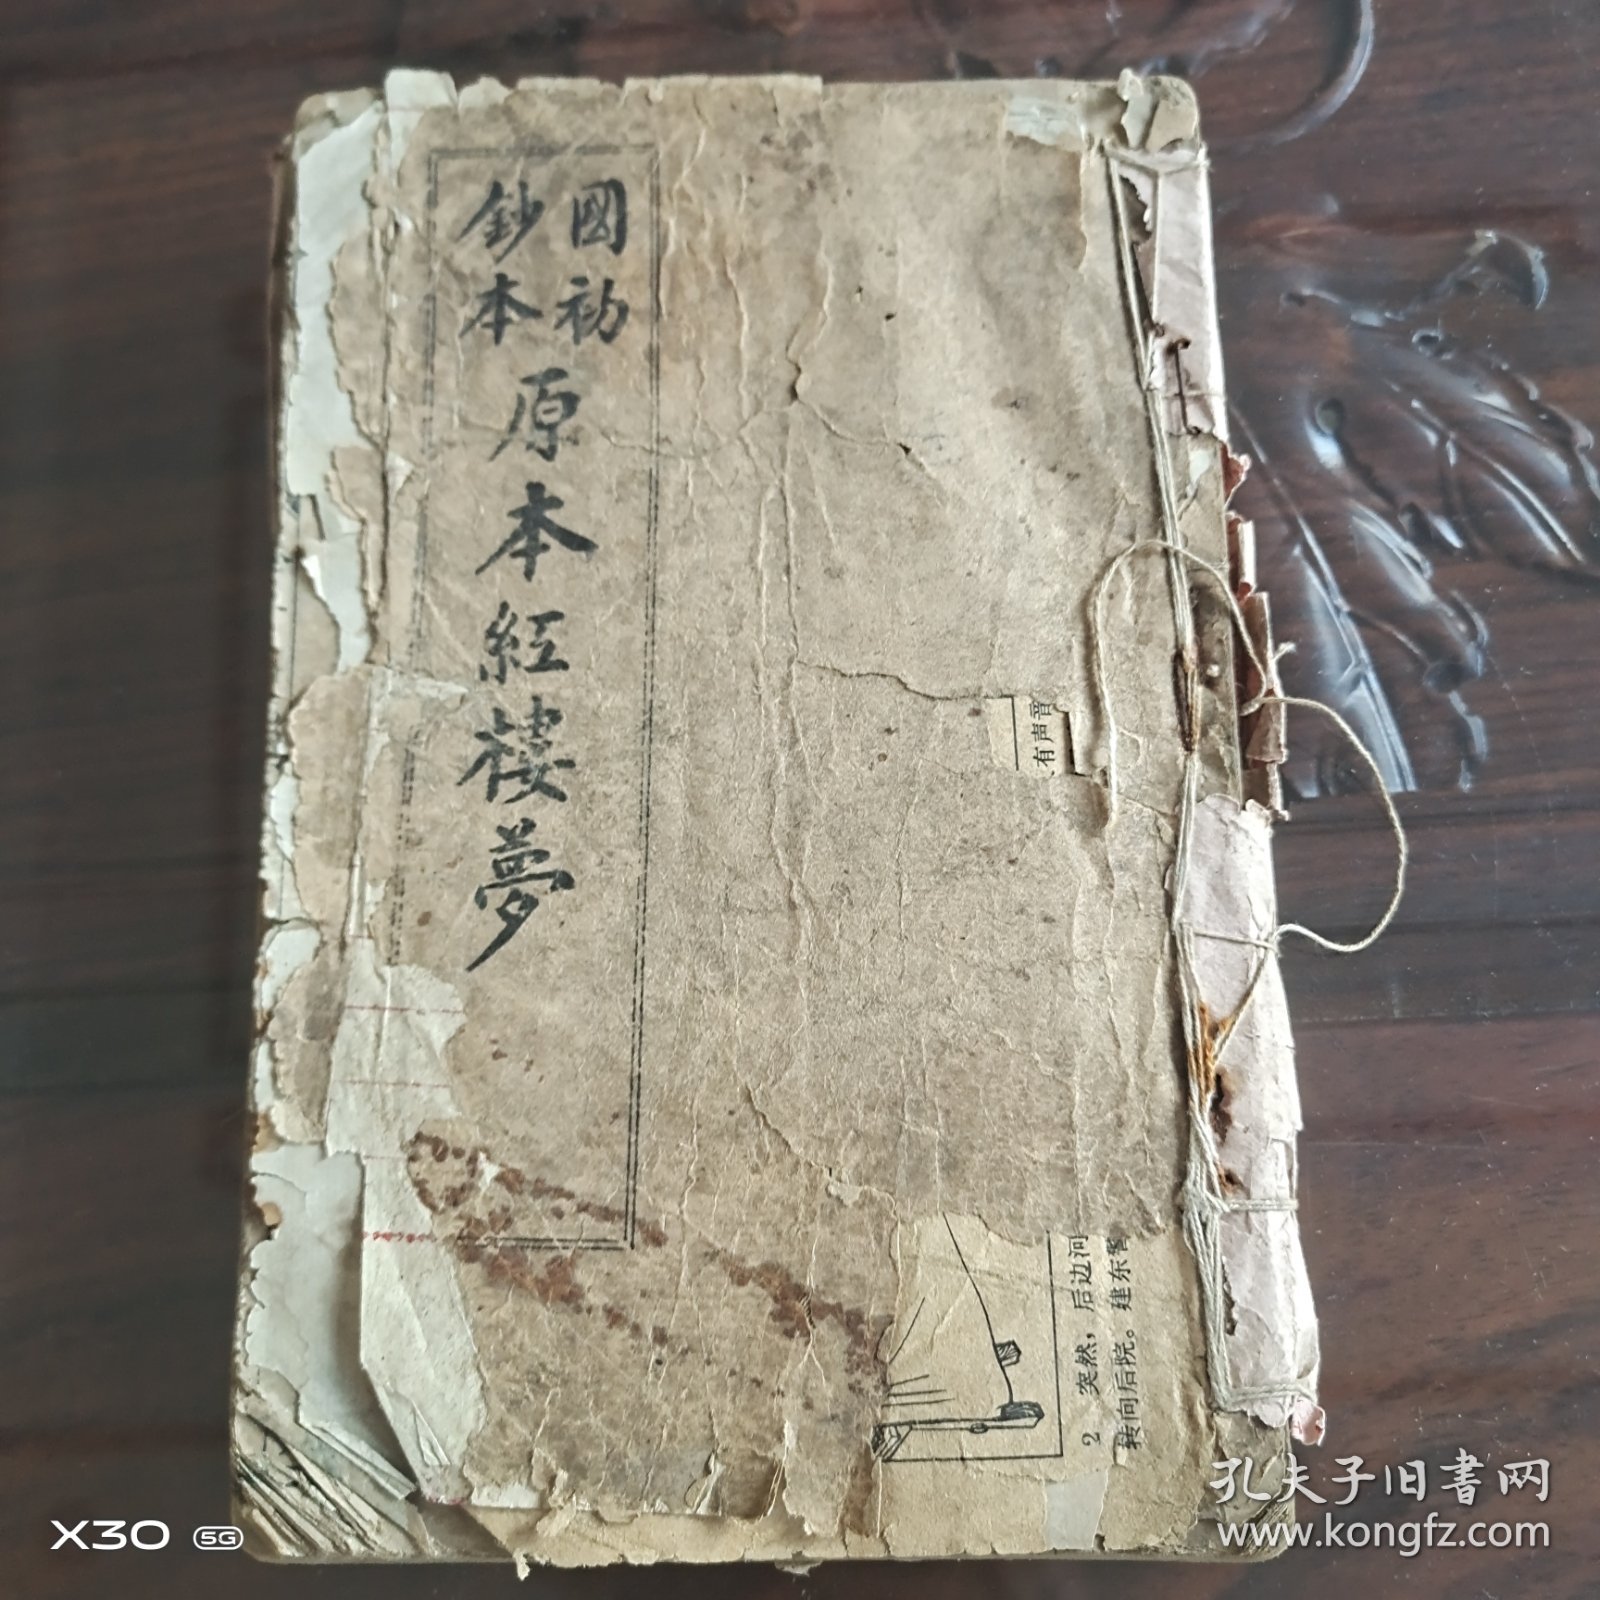 國初
鈔本
原本紅樓夢
有声音
2 突然，后边河
转向后院。建东警
孔夫子旧书网
www.kongfz.com
X30 5G